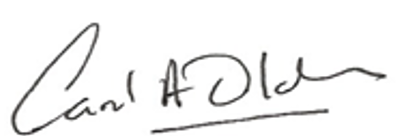 Carl A Olden